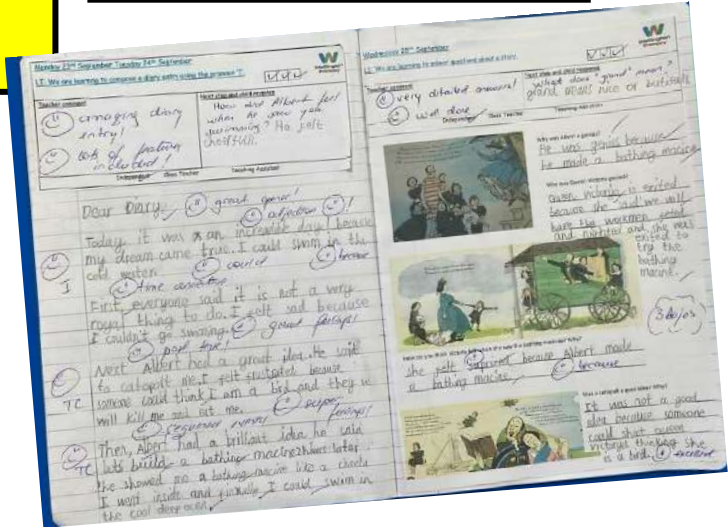 Monday 23rd September Tuesday 24th September
LI: We are learning to compose a diary entry using the pronoun 'I'.
Teacher comment
amazing diary
entry!
lots of feelings
included!
Next step and child response
How did Albert feel
when he saw you
swimming? He felt
Independent Class Teacher Teaching Assistant
Dear Diary, great opener!
adjective!
Today, it was an incredible day! because
my dream came true. I could swim in the
cold water.
could
because
I
time connective
First, everyone said it is not a very
royal thing to do. I felt sad because
I couldn't go swiming. great feelings!
past tense!
Next Albert had a great idea. He said
to catapolt me. I felt frustrated because
someone could think I am a bird and they
will kill me and eat me.
TC
sequenced events!
super feelings!
Then, Albert had a brilliant idea he said
lets build a bathing macine 2 hours later
he showed me a bathing macine like a
I went inside and finally I could swim in
the cool deep ocean.
TC
Wednesday 25th September
LI: We are learning to answer questions about a story.
Teacher comment
very detailed answers!
well done
Next step and child response
What does "grand" mean?
grand means nice or butifull
Independent Class Teacher Teaching Assistant
Why was Albert a genius?
He was genius because
he made a bathing macine
Why was Queen Victoria excited?
Queen victoria is exited
because she said we will
have the workmen
and and she was
exited to
try the
bathing
macine.
3 Dojos
How do you think Victoria felt when she saw the bathing machine? Why?
she felt suprised because Albert made
a bathing macine.
because
Was a catapult a good idea? Why?
It was not a good
idea because someone
could shot queen
victoria thinking she
is a bird. excellent